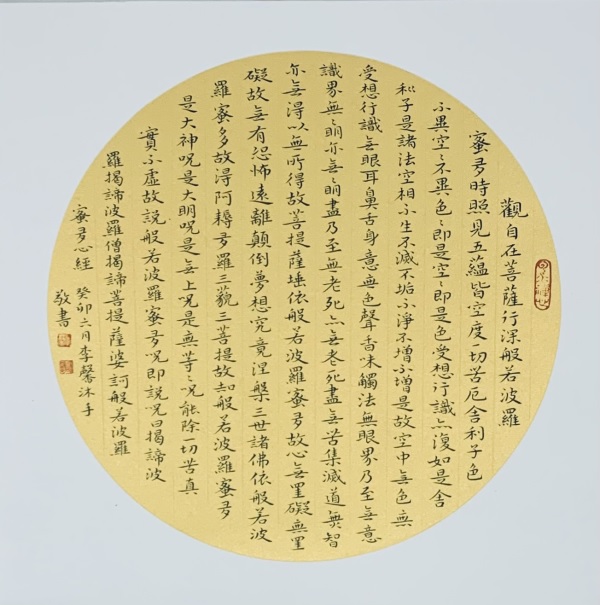 觀自在菩薩行深般若波羅
蜜多時照見五蘊皆空度一切苦厄舍利子色
不異空〻不異色〻即是空〻即是色受想行識亦復如是舍
利子是諸法空相不生不滅不垢不淨不增不增是故空中無色無
受想行識無眼耳鼻舌身意無色聲香味觸法無眼界乃至無意
識界無〻明亦無〻明盡乃至無老死亦無老死盡無苦集滅道無智
亦無得以無所得故菩提薩埵依般若波羅蜜多故心無罣礙無罣
礙故無有恐怖遠離顛倒夢想究竟涅槃三世諸佛依般若波
羅蜜多故得阿耨多羅三藐三菩提故知般若波羅蜜多
是大神呪是大明呪是無上呪是無等〻呪能除一切苦真
實不虛故說般若波羅蜜多呪即說呪曰揭諦波
羅揭諦波羅僧揭諦菩提薩婆訶般若波羅
蜜多心經 癸卯六月李馨沐手
敬書